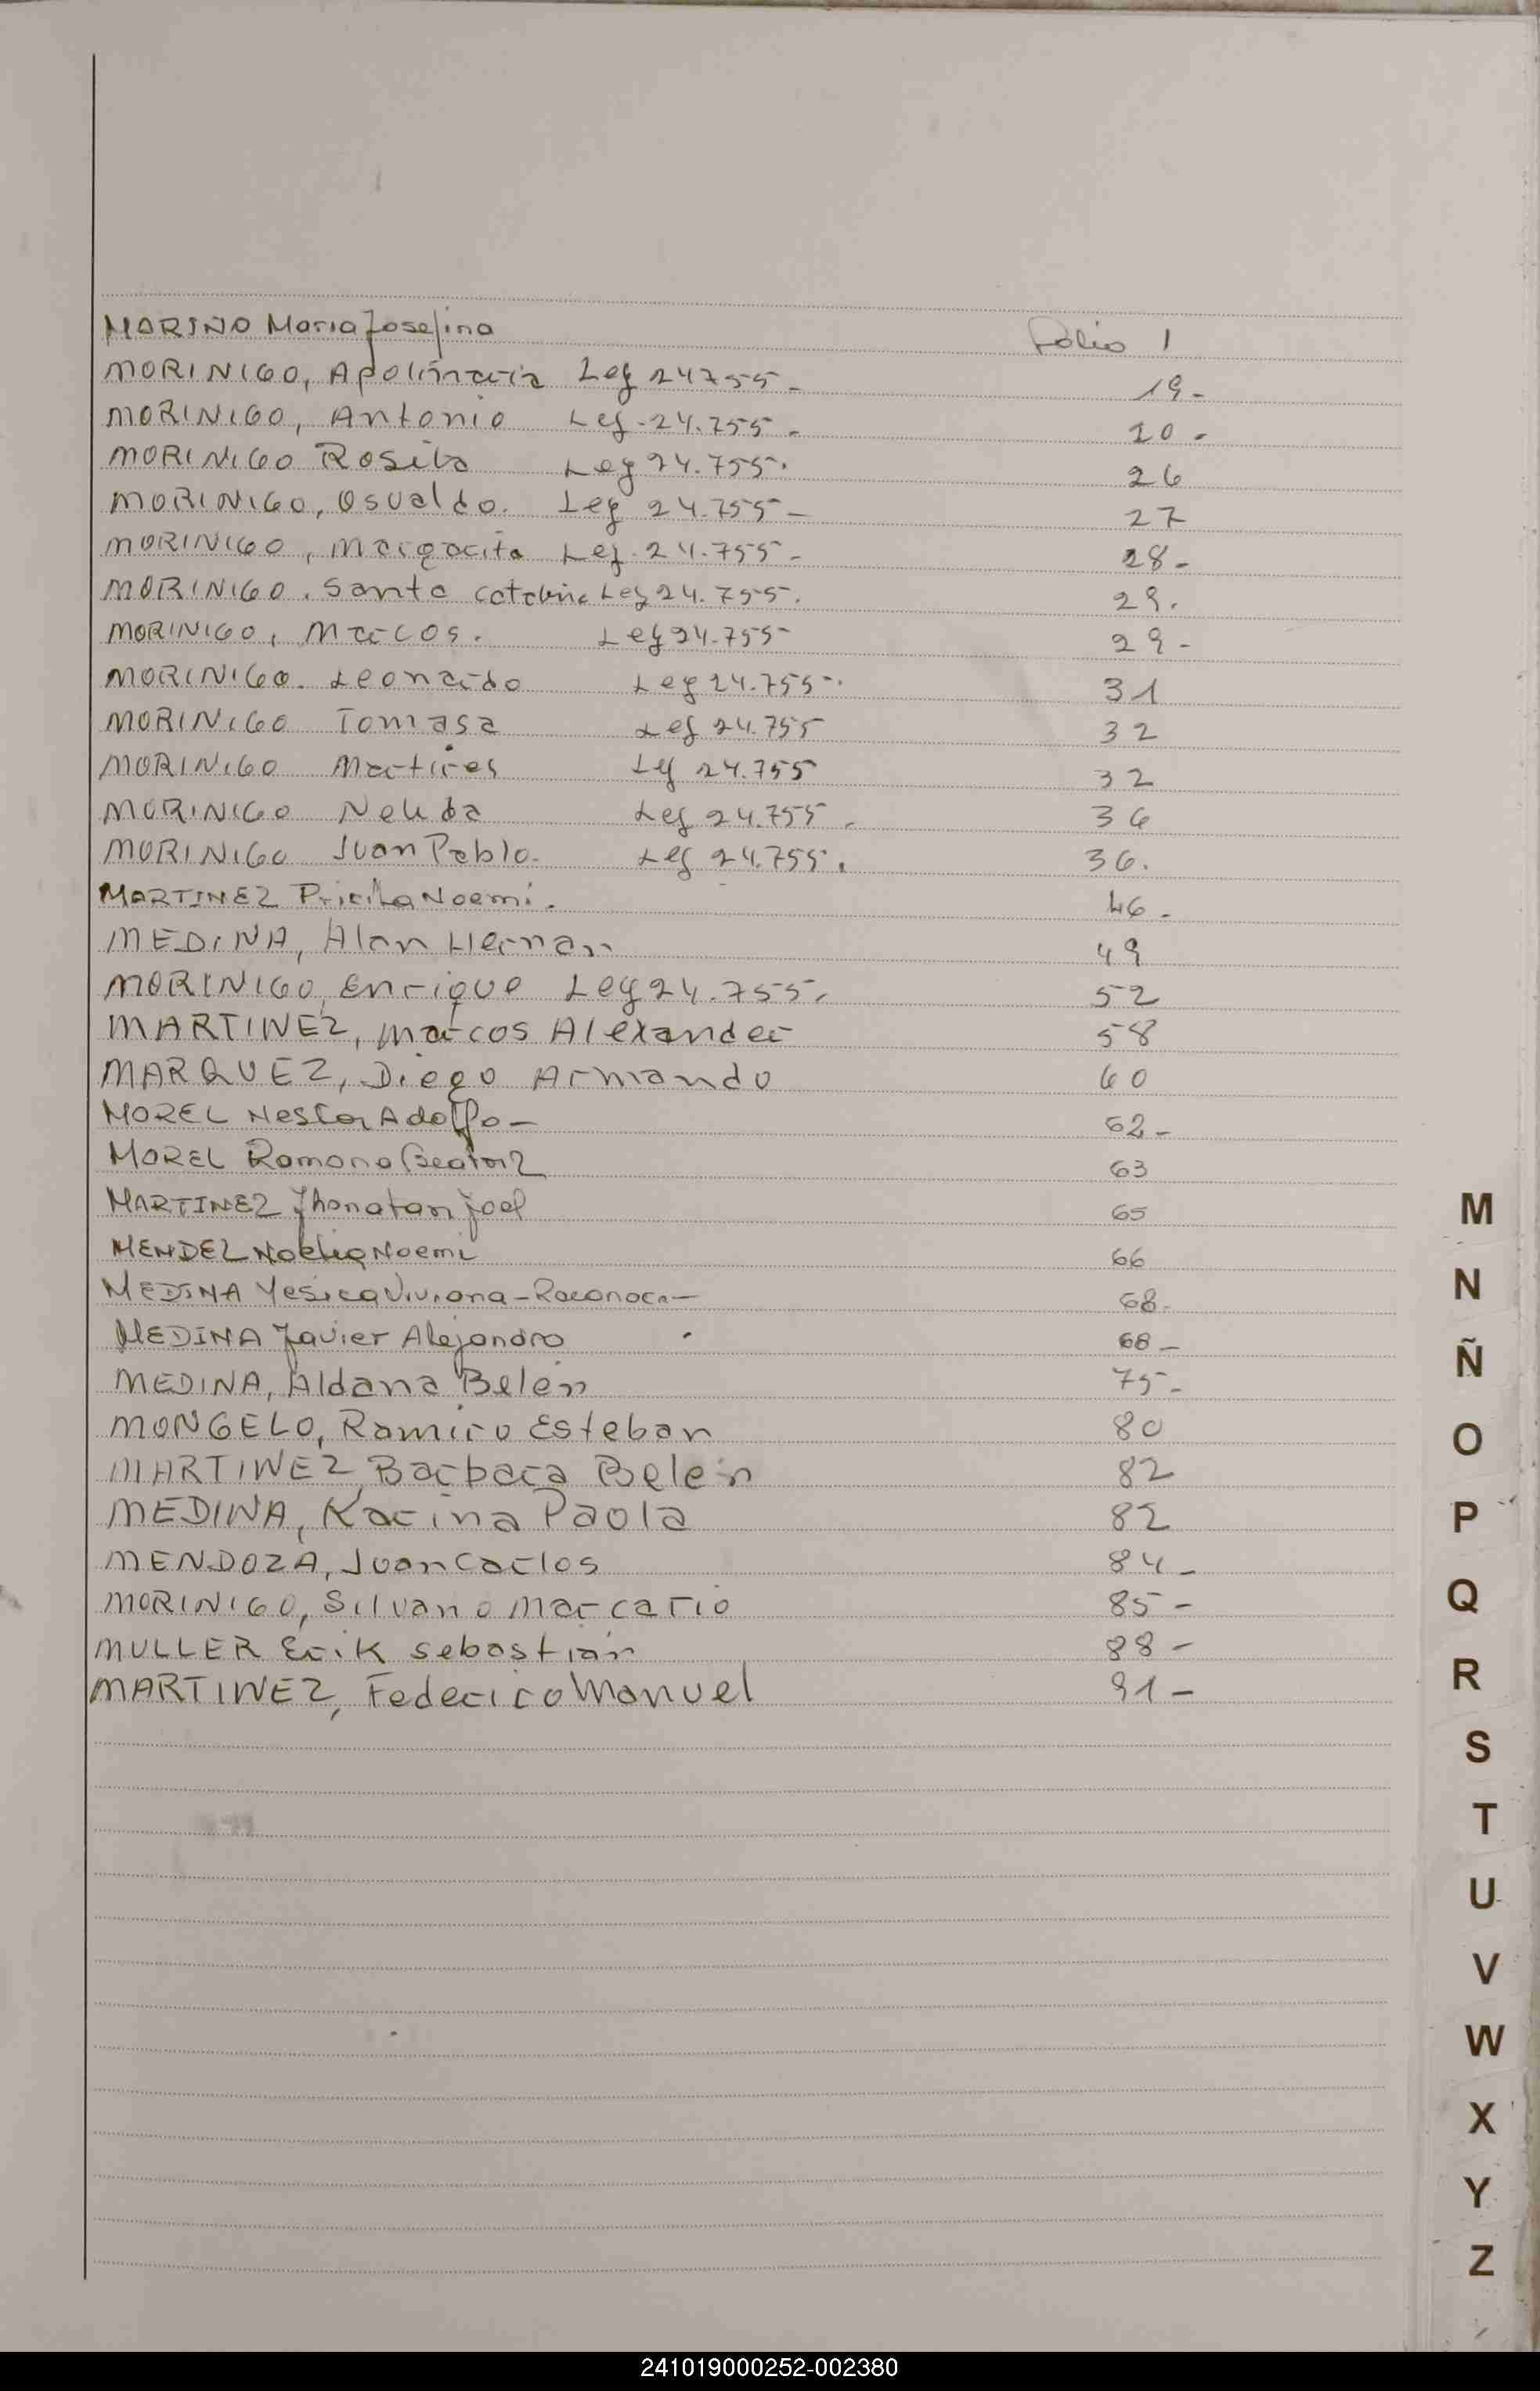 MARIÑO Maria Josefina Folio 1
MORINIGO, Apolinaria Ley 24755- 19-
MORINIGO, Antonio Ley-24.755- 20-
MORINIGO Rosita Ley 24.755. 26
MORINIGO, Osvaldo. Ley 24.755- 27
MORINIGO, Margarita Ley-24.755- 28-
MORINIGO. Santa Catalina Ley 24.755. 29.
MORINIGO, Marcos. Ley 24.755- 29-
MORINIGO. Leonardo Ley 24.755-. 31
MORINIGO Tomasa Ley 24.755 32
MORINIGO Martires Ley 24.755 32
MORINIGO Nelida Ley 24.755. 36
MORINIGO Juan Pablo. Ley 24.755. 36.
MARTINEZ Pricila Noemi. 46-
MEDINA, Alan Hernan 49
MORINIGO, Enrique Ley 24.755. 52
MARTINEZ, Marcos Alexander 58
MARQUEZ, Diego Armando 60
MOREL Nestor Adolfo- 62-
MOREL Ramona Beatriz 63
MARTINEZ Jhonatan Joel 65
MENDEZ Noelia Noemi 66
MEDINA Yesica Viviana - 68-
MEDINA Javier Alejandro 68-
MEDINA, Aldana Belén 75-
MONGELO, Ramiro Esteban 80
MARTINEZ, Barbara Belén 82
MEDINA, Karina Paola 82
MENDOZA, Juan Carlos 84-
MORINIGO, Silvano Marcario 85-
MULLER Erik Sebastián 88-
MARTINEZ, Federico Manuel 91-
M
N
Ñ
O
P
Q
R
S
T
U
V
W
X
Y
Z
241019000252-002380